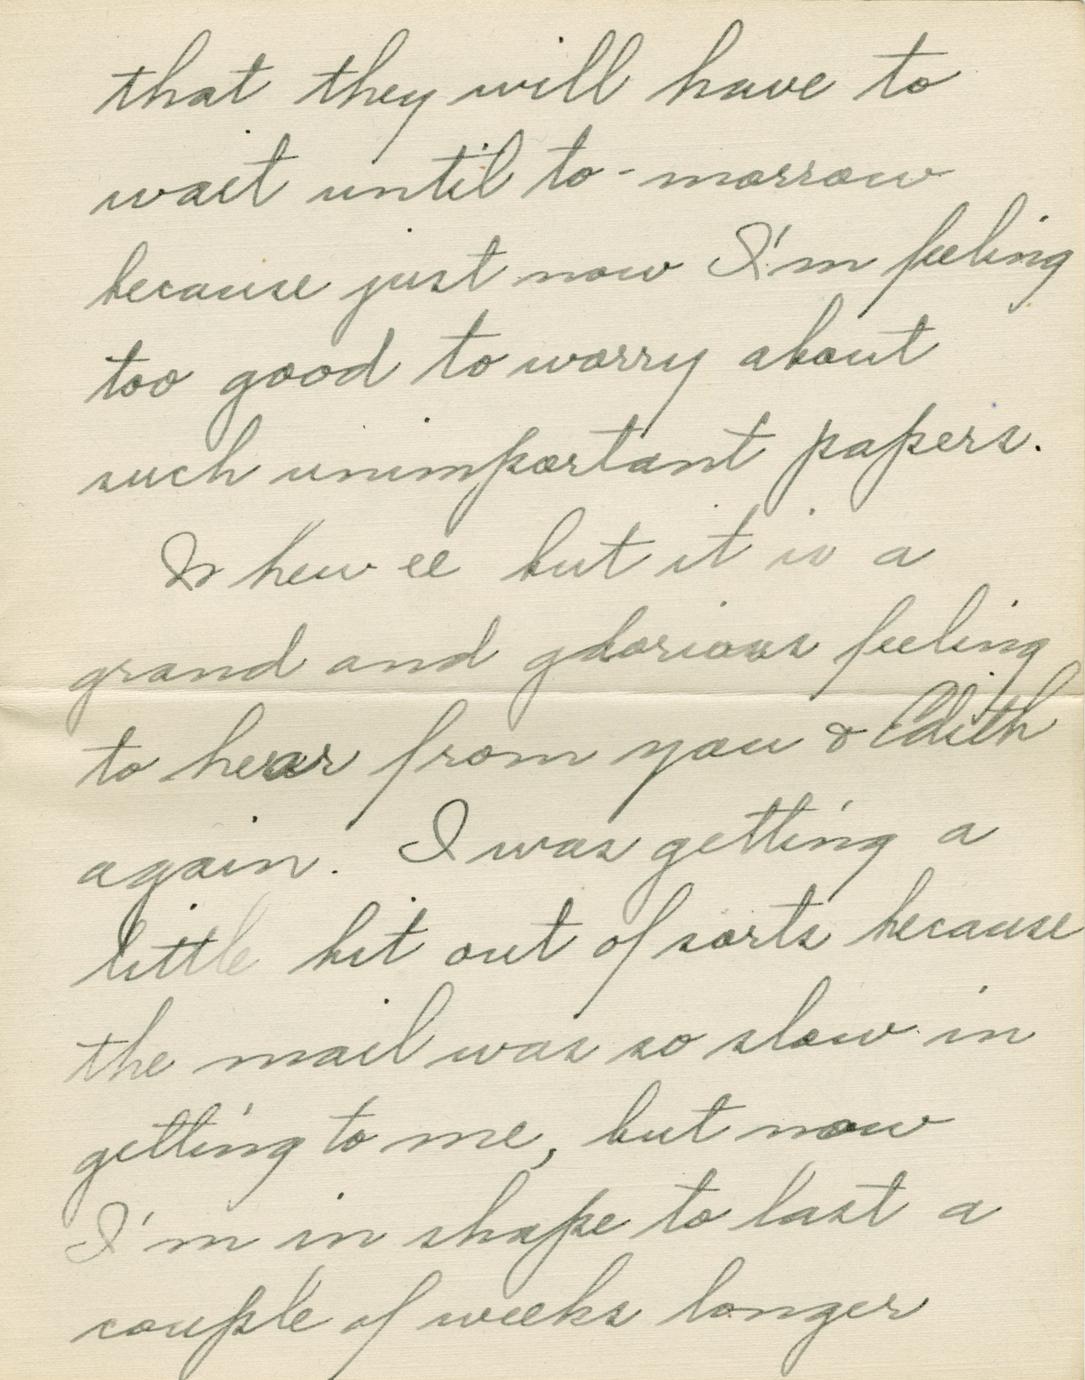 that they will have to
wait until to-morrow
because just now I'm feeling
too good to worry about
such unimportant papers.
Whew ee but it is a
grand and glorious feeling
to hear from you & Edith
again. I was getting a
little bit out of sorts because
the mail was so slow in
getting to me, but now
I'm in shape to last a
couple of weeks longer